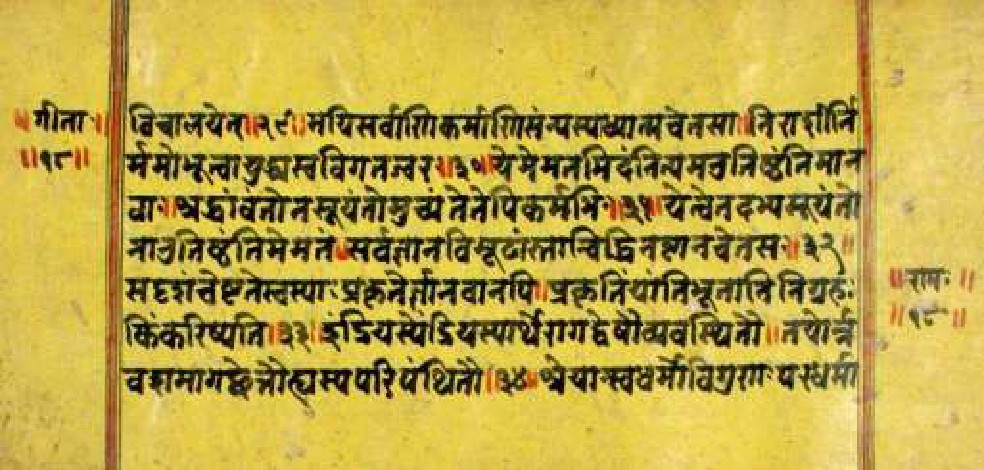 गीता
॥१८॥
विचालयेत्॥२९॥मयिसर्वाणिकर्माणिसंन्यस्याध्यात्मचेतसा॥निराशीर्नि
र्ममोभूत्वायुद्ध्यस्वविगतज्वरः॥३०॥येमेमतमिदंनित्यमनुतिष्ठंतिमान
वाः॥श्रद्धावंतोनसूयंतोमुच्यंतेतेपिकर्मभिः॥३१॥येत्वेतदभ्यसूयंतो
नानुतिष्ठंतिमेमतं॥सर्वज्ञानविमूढांस्तान्विद्धिनष्टानचेतसः॥३२॥
सदृशंचेष्टतेस्वस्याःप्रकृतेर्ज्ञानवानपि॥प्रकृतिंयांतिभूतानिनिग्रहः
किंकरिष्यति॥३३॥इंद्रियस्येंद्रियस्यार्थेरागद्वेषौव्यवस्थितौ॥तयोर्न्न
वशमागच्छेत्तौह्यस्यपरिपंथिनौ॥३४॥श्रेयान्स्वधर्मोविगुणःपरधर्मा
॥रामः॥
॥१८॥